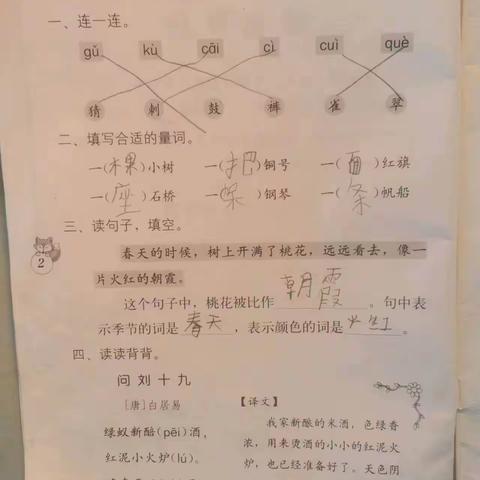 一、连一连。
gǔ kù cāi cì cuì què
猜 刺 鼓 裤 雀 翠
二、填写合适的量词。
一(棵)小树 一(把)铜号 一(面)红旗
一(座)石桥 一( )钢琴 一(条)帆船
三、读句子，填空。
春天的时候，树上开满了桃花，远远看去，像一
片火红的朝霞。
这个句子中，桃花被比作 朝霞 。句中表
示季节的词是 春天 ，表示颜色的词是 火红 。
2
四、读读背背。
问刘十九
[唐]白居易
绿蚁新醅(pēi)酒，
红泥小火炉(lú)。
【译文】
我家新酿的米酒，色绿香
浓，用来烫酒的小小的红泥火
炉，也已经准备好了。天色阴